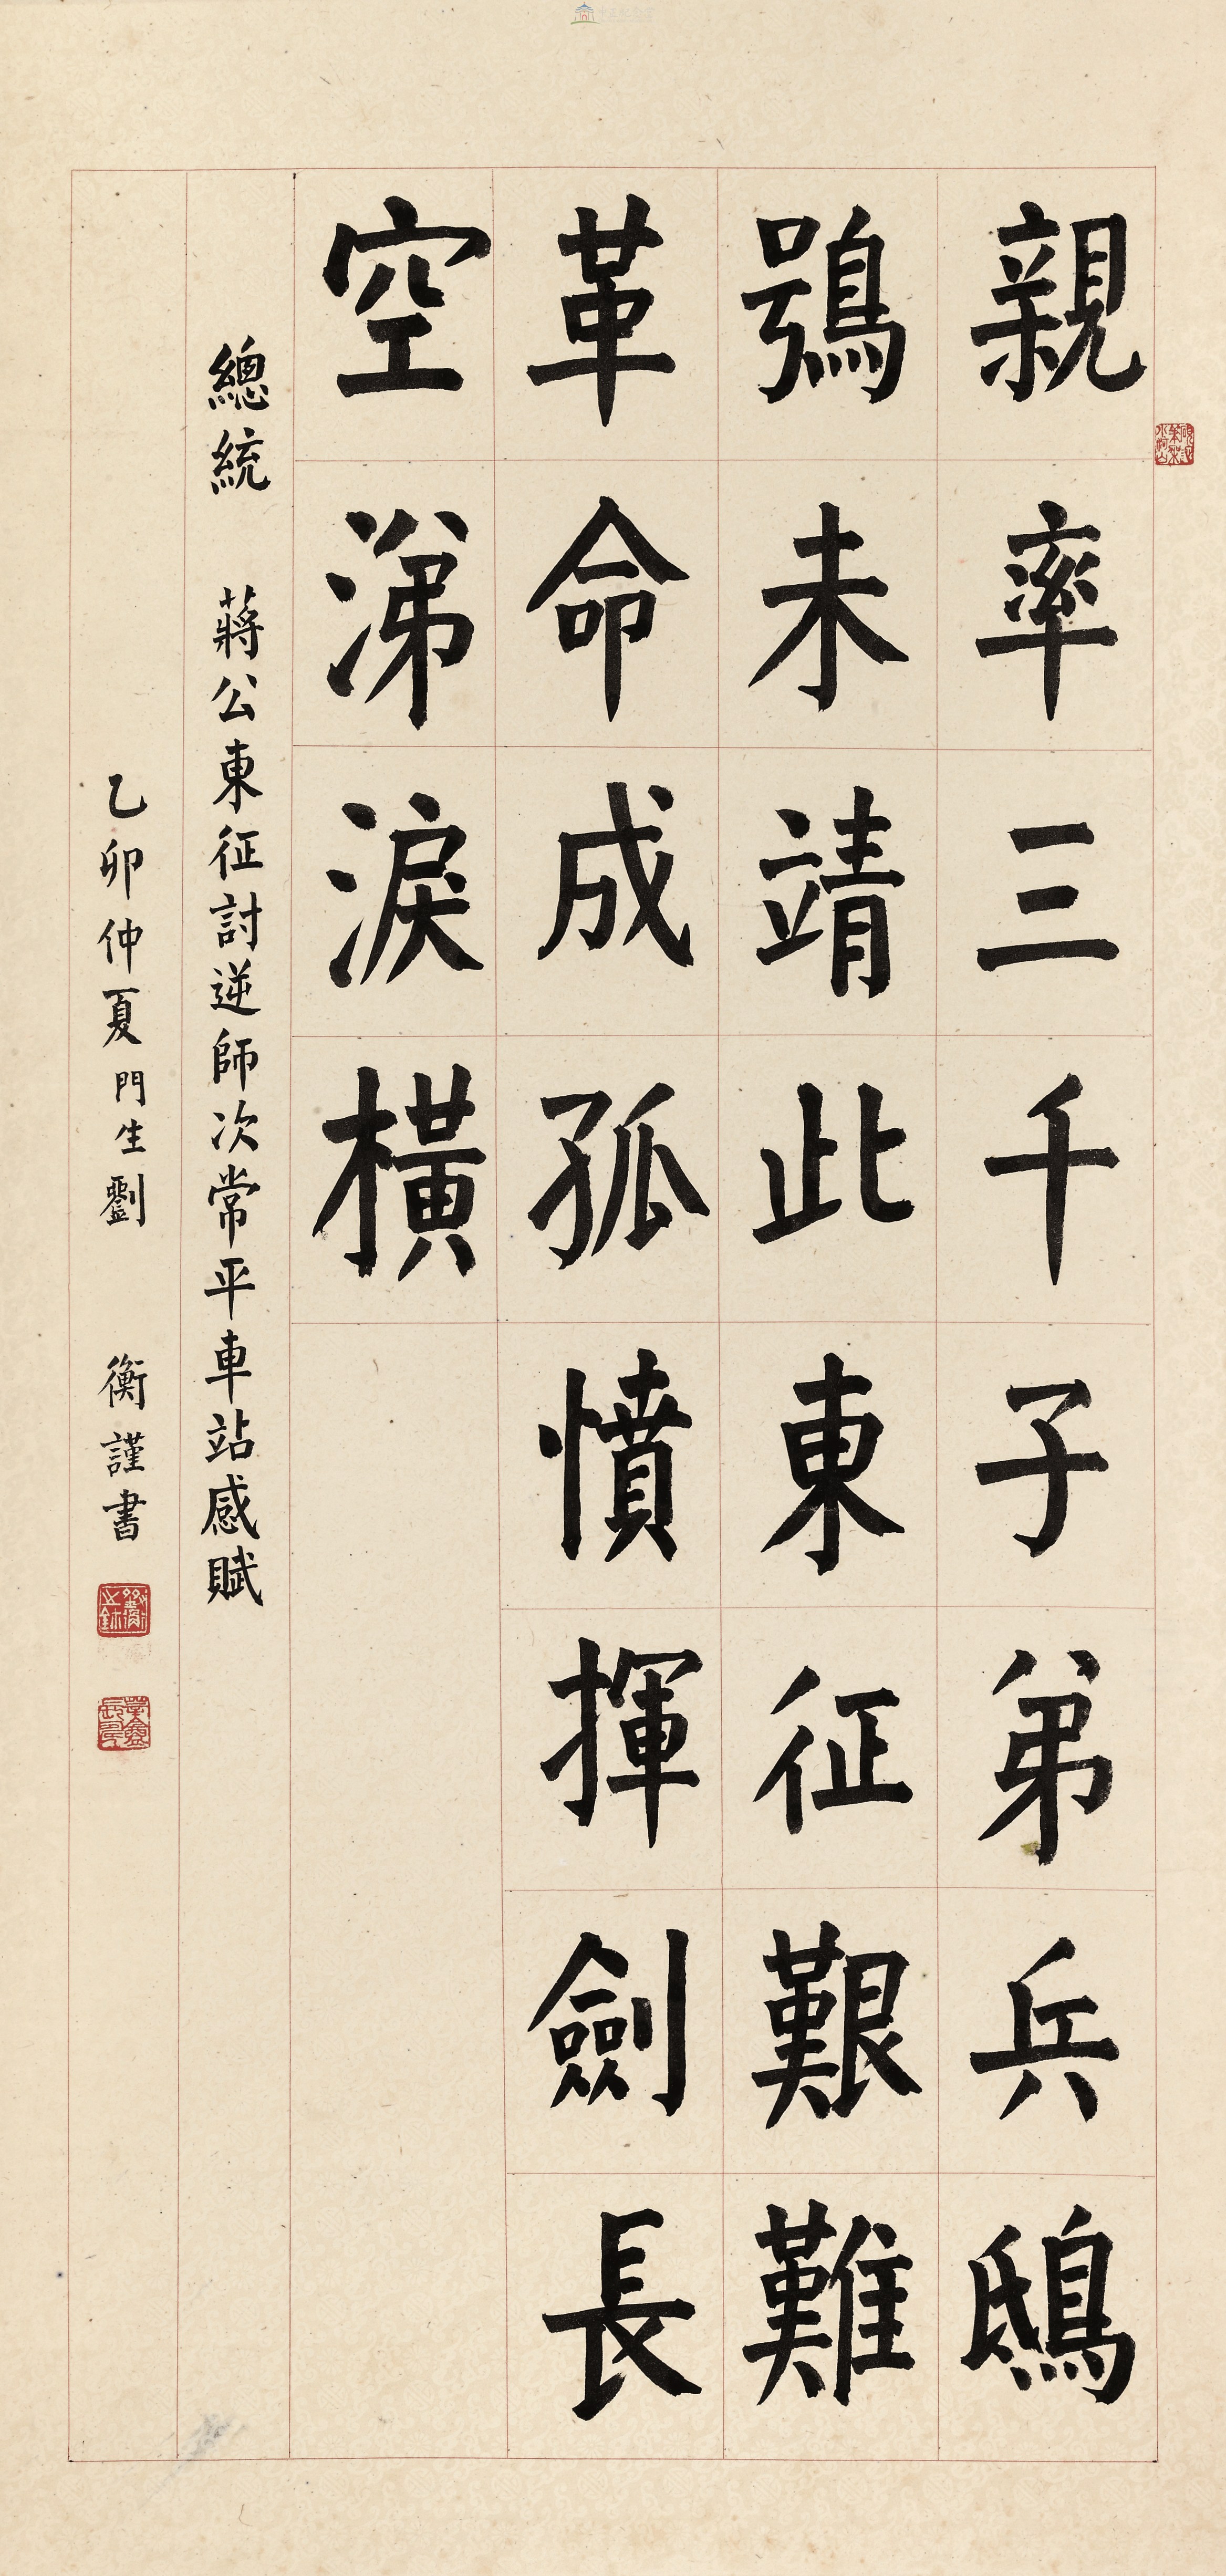 親率三千子弟兵鴟
鴞未靖此東征艱難
革命成孤憤揮劍長
空涕淚橫
總統 蔣公東征討逆師次常平車站感賦
乙卯仲夏門生劉 衡謹書